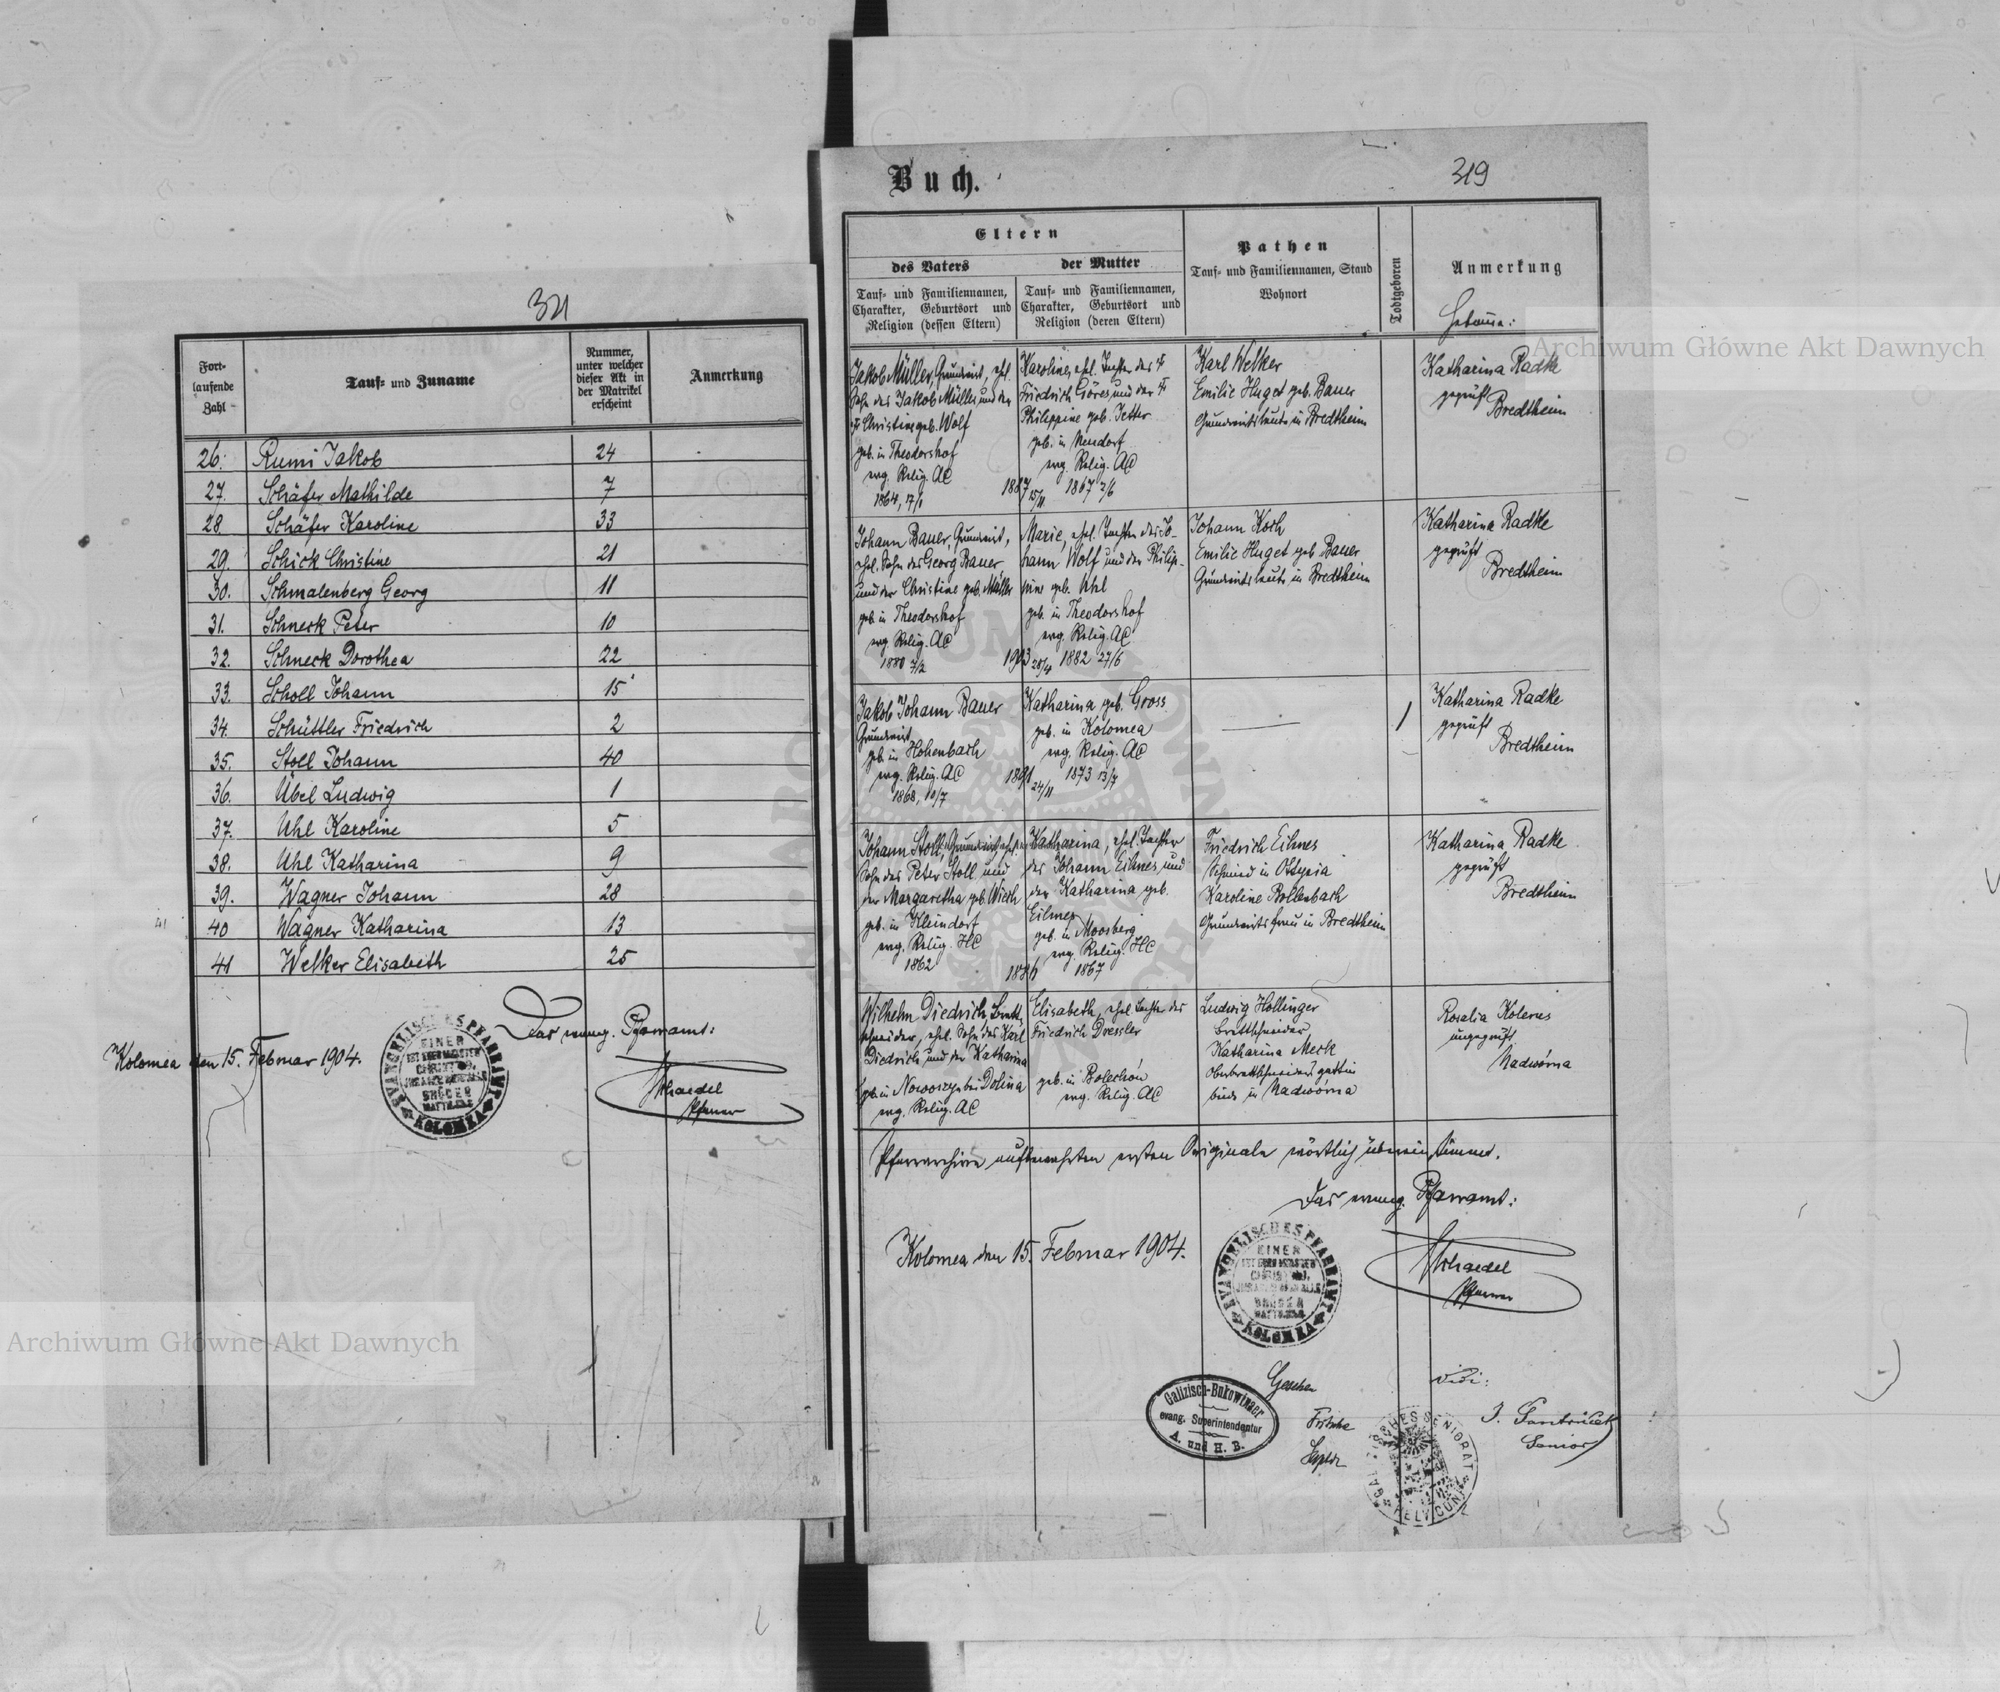 321
Fort-
laufende
Zahl
Tauf- und Zuname
Nummer,
unter welcher
dieser Akt in
der Matrikel
erscheint
Anmerkung
26. Rumi Jakob 24
27. Schäfer Mathilde 7
28. Schäfer Karoline 33
29. Schick Christine 21
30. Schmalenberg Georg 11
31. Schneck Peter 10
32. Schneck Dorothea 22
33. Scholl Johann 15
34. Schüttler Friedrich 2
35. Stoll Johann 40
36. Übel Ludwig 1
37. Uhl Karoline 5
38. Uhl Katharina 9
39. Wagner Johann 28
40 Wagner Katharina 13
41 Welker Elisabeth 25
Das evang. Pfarramt:
Kolomea den 15. Februar 1904.
EVANGELISCHES PFARRAMT KOLOMEA
EINER
IST EUER MEISTER
CHRISTUS,
IHR ABER SEID ALLE
BRÜDER
MATTH. 23,8.
Schaedel
Pfarrer
Buch.
319
Eltern
des Vaters
Tauf- und Familiennamen,
Charakter, Geburtsort und
Religion (dessen Eltern)
der Mutter
Tauf- und Familiennamen,
Charakter, Geburtsort und
Religion (deren Eltern)
Pathen
Tauf- und Familiennamen, Stand
Wohnort
Todtgeboren
Anmerkung
Hebamme:
Jakob Müller, Grundwirt, ehel.
Sohn des Jakob Müller und der
† Christine geb. Wolf
geb. in Theodorshof
evg. Relig. AC
1864, 17/1
1887 15/11
Karoline, ehel. Tochter des †
Friedrich Göres und der †
Philippine geb. Jetter
geb. in Neudorf
evg. Relig. AC
1867 2/6
Karl Welker
Emilie Huget geb. Bauer
Grundwirtsleute in Bredtheim
Katharina Radke
geprüft
Bredtheim
Johann Bauer, Grundwirt,
ehel. Sohn des Georg Bauer
und der Christine geb. Müller
geb. in Theodorshof
evg. Relig. AC
1880 7/2
1903 28/4
Marie, ehel. Tochter des Jo-
hann Wolf und der Philip-
pine geb. Uhl
geb. in Theodorshof
evg. Relig. AC
1882 27/6
Johann Koch
Emilie Huget geb Bauer
Grundwirtsleute in Bredtheim
Katharina Radke
geprüft
Bredtheim
Jakob Johann Bauer
Grundwirt
geb. in Hohenbach
evg. Relig. AC
1868, 10/7
1891 24/11
Katharina geb. Gross
geb. in Kolomea
evg. Relig. AC
1873 13/7
1
Katharina Radke
geprüft
Bredtheim
Johann Stoll, Grundwirt, ehel.
Sohn des Peter Stoll und
der Margaretha geb. Wirth
geb. in Kleindorf
evg. Relig. HC
1862
Katharina, ehel. Tochter
des Johann Eilmes und
der Katharina geb.
Eilmes
geb. in Moosberg
evg. Relig. HC
1867
Friedrich Eilmes
Schmied in
Karoline Bollenbach
Grundwirtsfrau in Bredtheim
Katharina Radke
geprüft
Bredtheim
Wilhelm Diedrich, Brett-
schneider, ehel. Sohn des Karl
Diedrich und der Katharina
geb. in bei Dolina
evg. Relig. AC
Elisabeth, ehel. Tochter des
Friedrich Dressler
geb. in Bolechów
evg. Relig. AC
Ludwig Hollinger
Brettschneider
Katharina Meck
Oberbrettschneidersgattin
beide in Nadwórna
Rosalia
ungeprüft
Nadwórna
Pfarrarchive aufbewahrten ersten Originale wörtlich übereinstimmt.
Das evang. Pfarramt:
Kolomea den 15. Februar 1904.
EVANGELISCHES PFARRAMT KOLOMEA
EINER
IST EUER MEISTER
CHRISTUS,
IHR ABER SEID ALLE
BRÜDER
MATTH. 23,8.
Schaedel
Pfarrer
Galizisch-Bukowinaer
evang. Superintendentur
A. und H. B.
Gesehen
Fritsche
Supdt
Vidi:
Senior
Archiwum Główne Akt Dawnych
Archiwum Główne Akt Dawnych